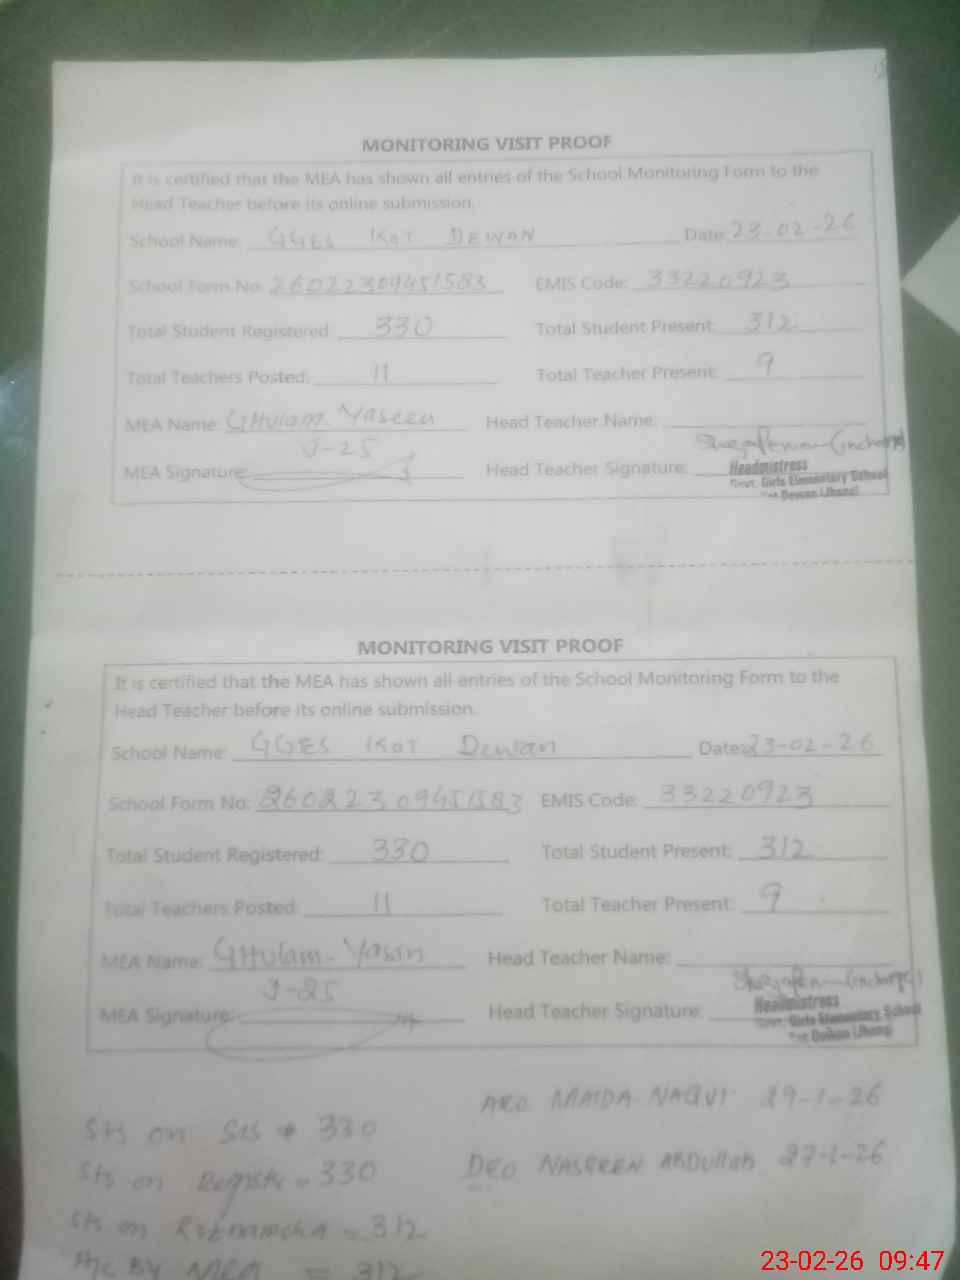 MONITORING VISIT PROOF
It is certified that the MEA has shown all entries of the School Monitoring Form to the
Head Teacher before its online submission.
School Name: GGES KOT DEWAN Date: 23-02-26
School Form No: 26022309451583 EMIS Code: 33220923
Total Student Registered: 330 Total Student Present: 312
Total Teachers Posted: 11 Total Teacher Present: 9
MEA Name: GHulam Yaseen Head Teacher Name:
J-25
MEA Signature: Head Teacher Signature:
(incharge)
Headmistress
Govt. Girls Elementary School
Kot Dewan (Jhang)
MONITORING VISIT PROOF
It is certified that the MEA has shown all entries of the School Monitoring Form to the
Head Teacher before its online submission.
School Name: GGES KOT Dewan Date: 23-02-26
School Form No: 26022309451583 EMIS Code: 33220923
Total Student Registered: 330 Total Student Present: 312
Total Teachers Posted: 11 Total Teacher Present: 9
MEA Name: GHulam Yasin Head Teacher Name:
J-25
MEA Signature: Head Teacher Signature:
(incharge)
Headmistress
Govt. Girls Elementary School
Kot Dewan (Jhang)
AEO MAIDA NAQVI 29-1-26
Sts on SIS 330
DEO NASREEN ABDULLAH 27-1-26
Sts on Register = 330
Sts on Roznamcha = 312
BY MEA = 312
23-02-26 09:47